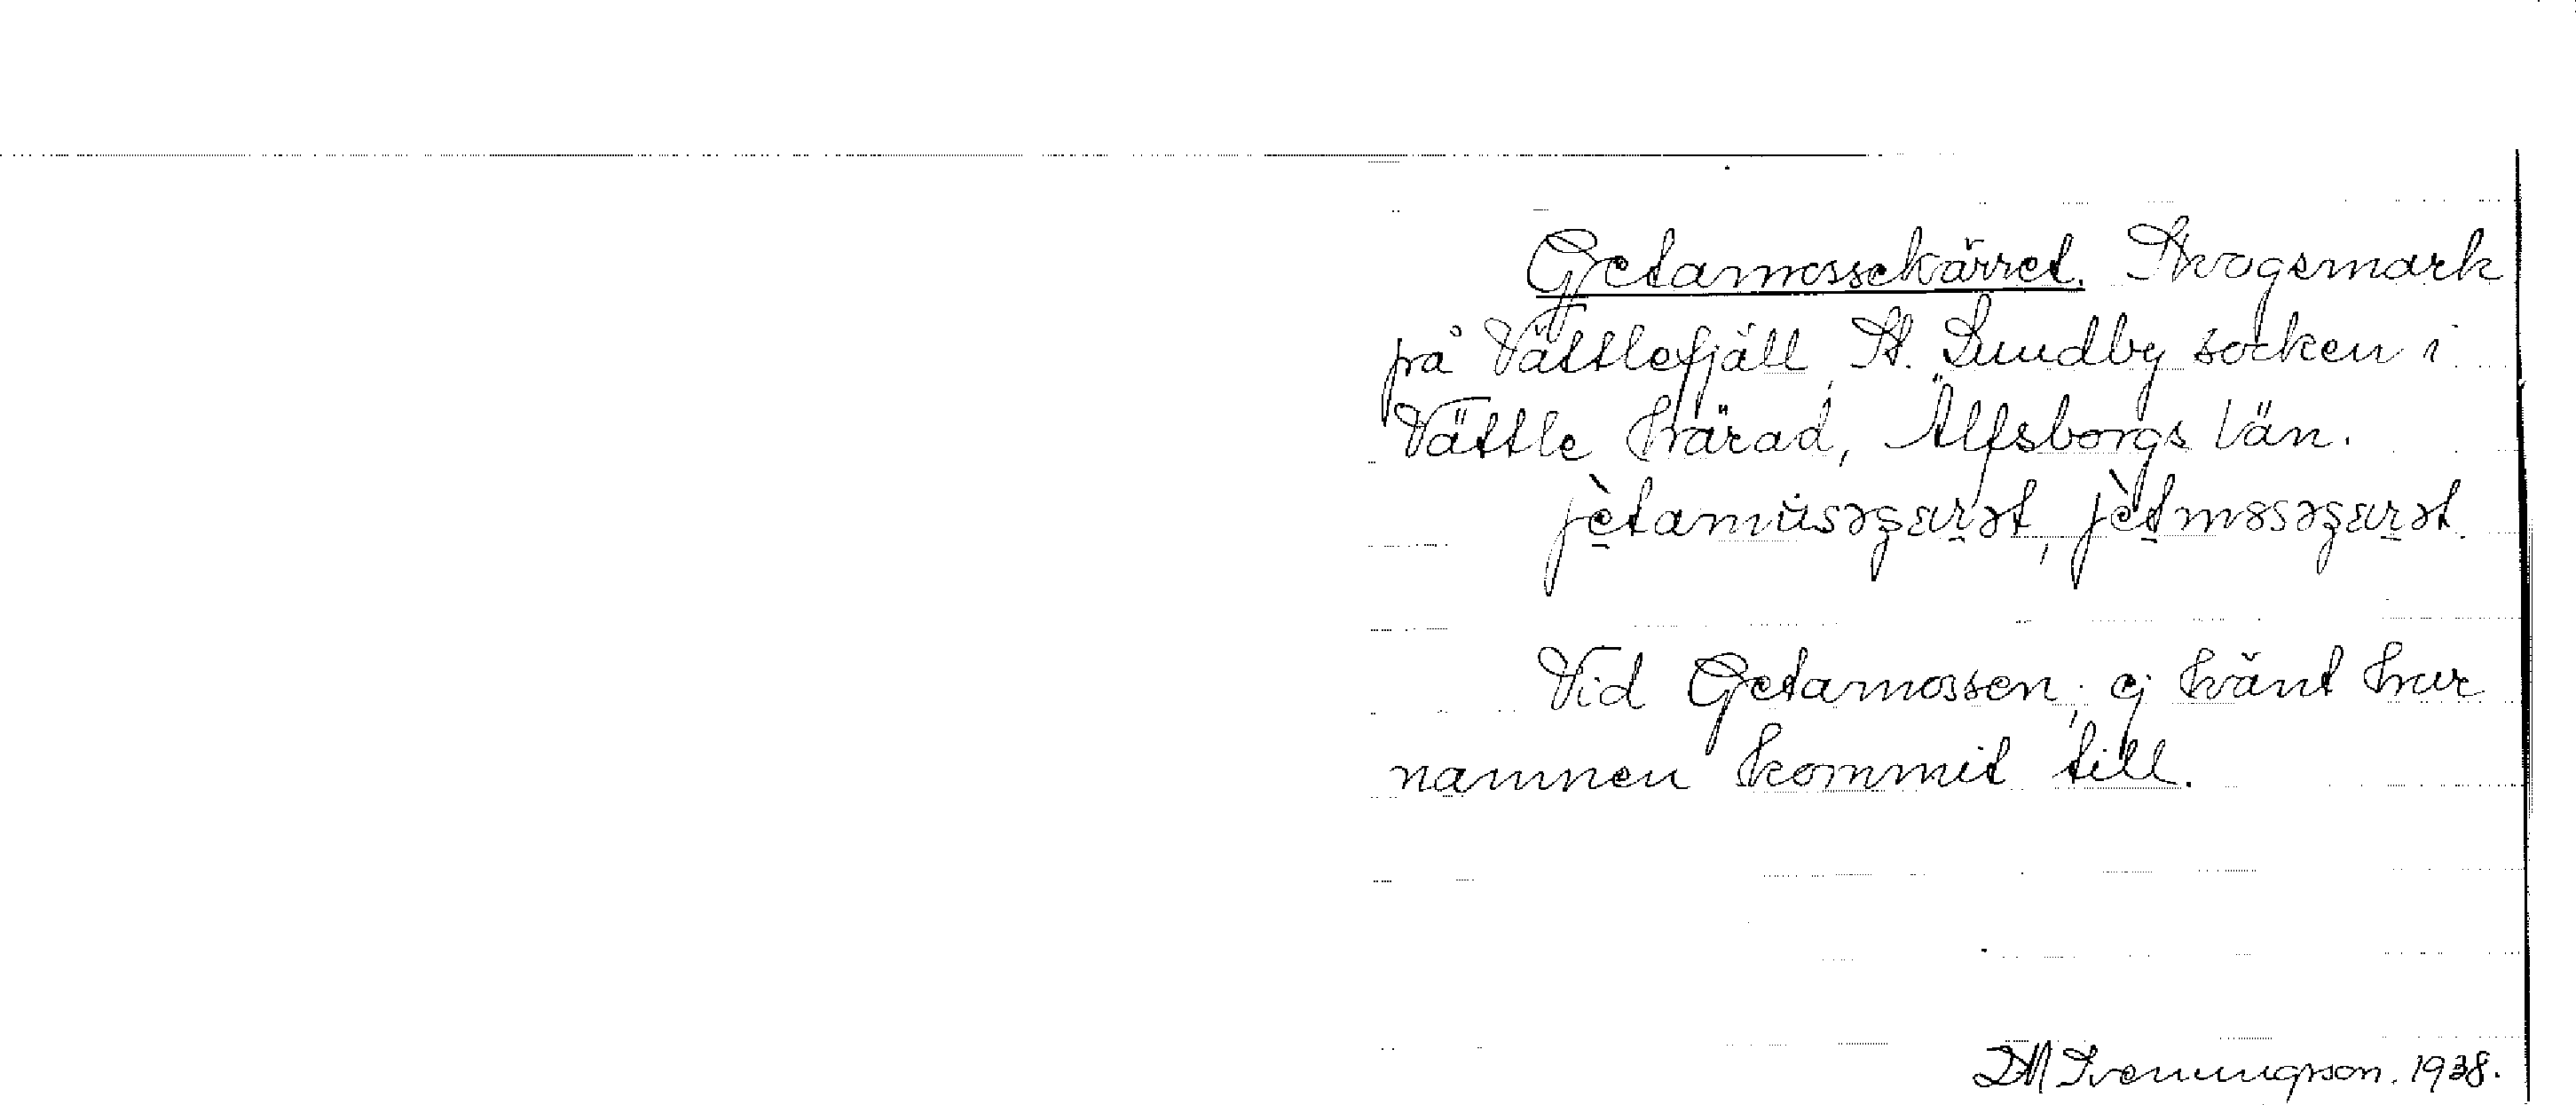 Getamossekärret. Skogsmark
på Vättlefjäll, St. Lundby socken i
Vättle härad, Älfsborgs län.
jètamùsəʂarət, jètmɞsəʂarət.
Vid Getamossen; ej känt hur
namnen kommit till.
DM Svenningson. 1938.